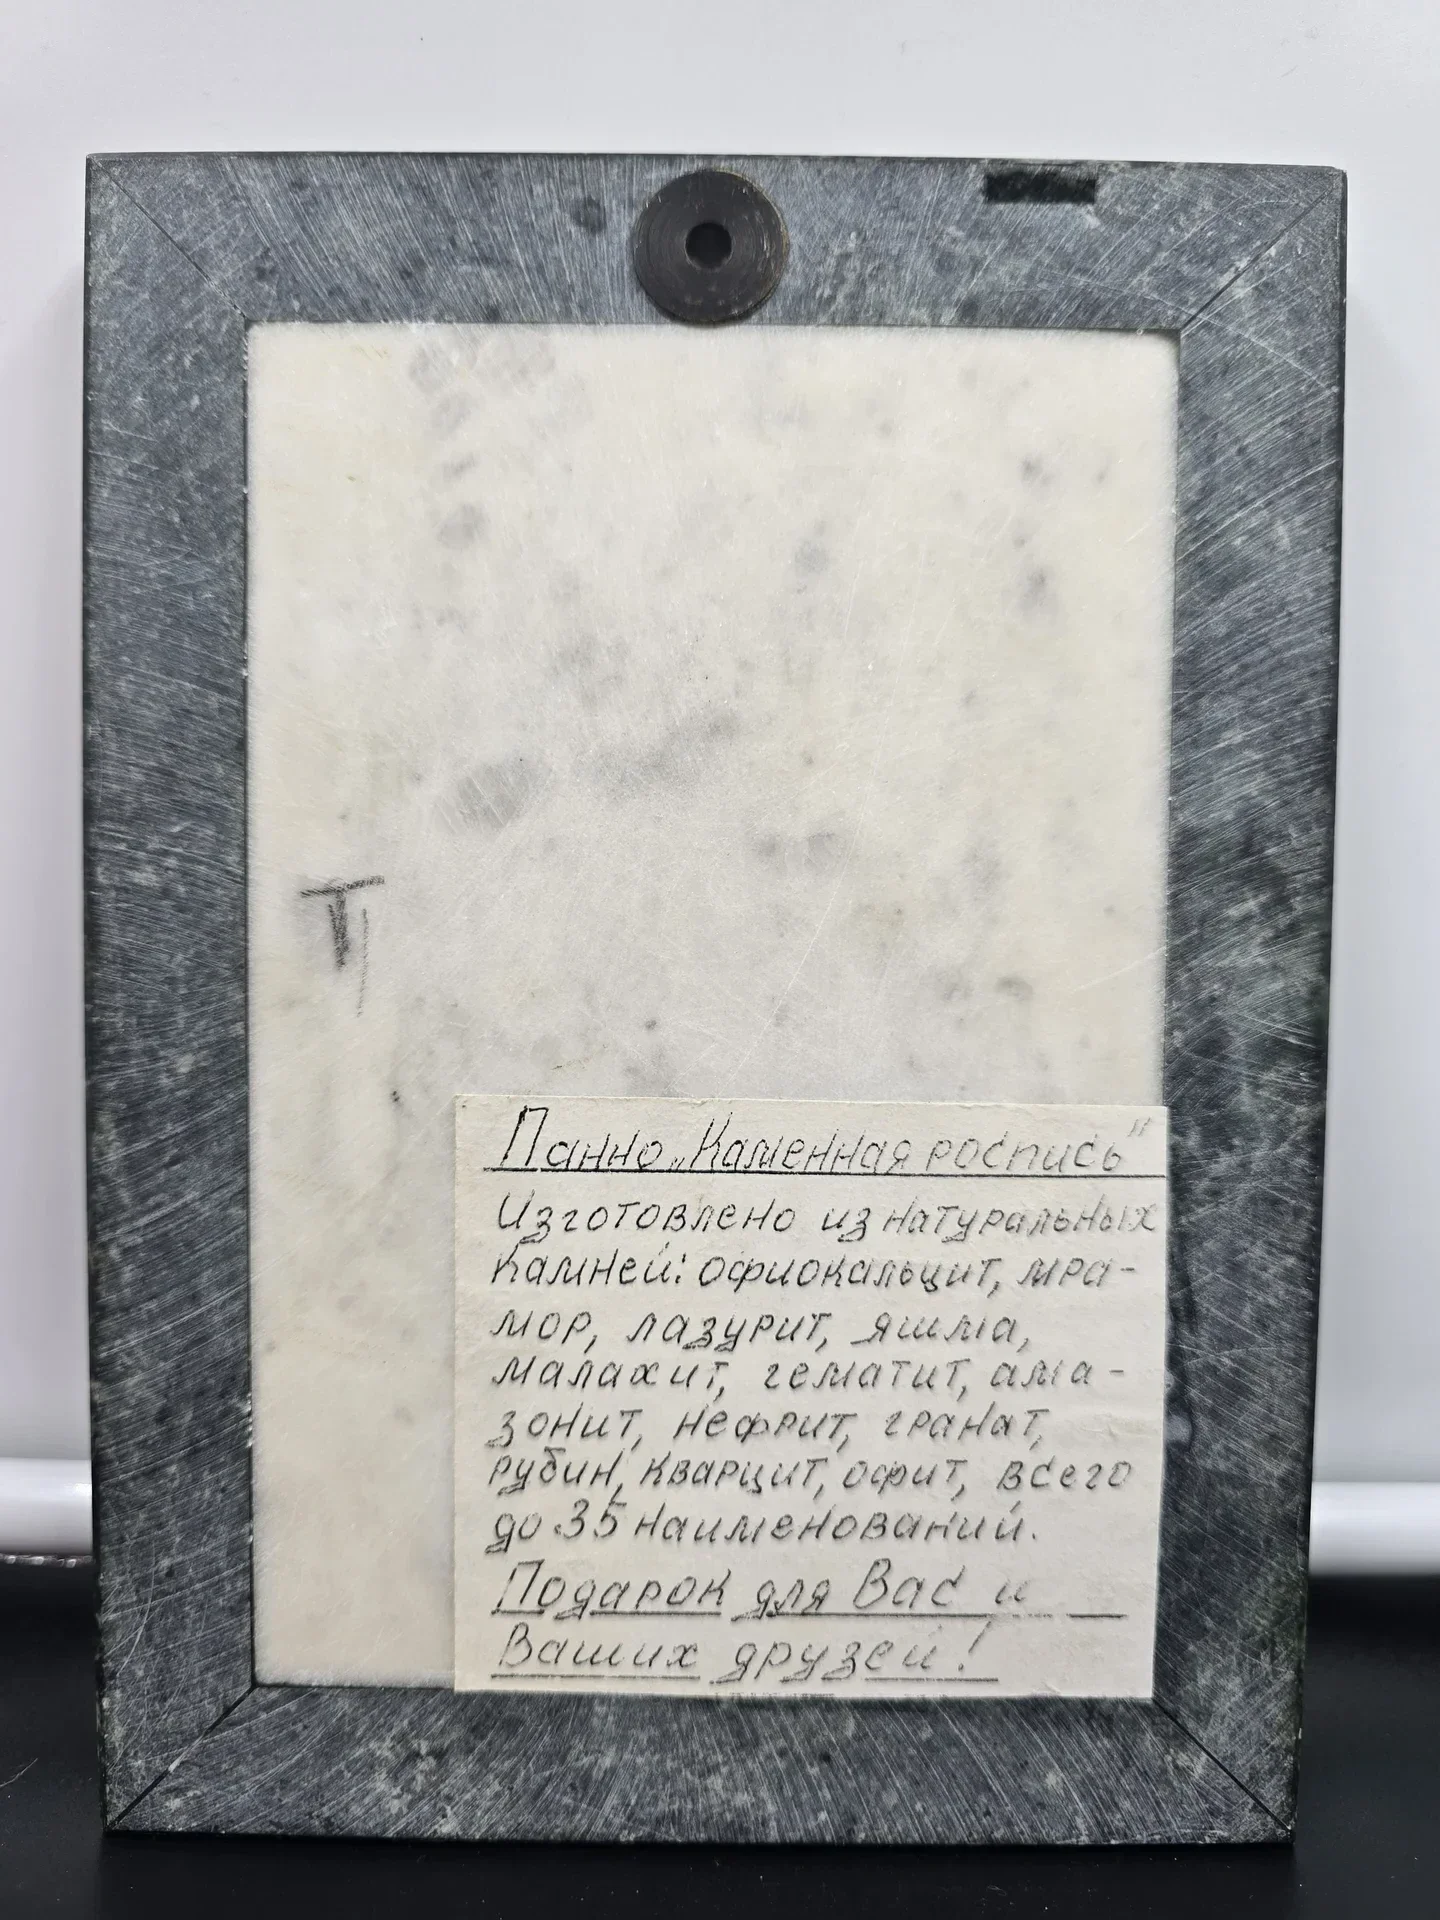 Т
Панно „Каменная роспись"
Изготовлено из натуральных
камней: офиокальцит, мра-
мор, лазурит, яшма,
малахит, гематит, ама-
зонит, нефрит, гранат,
рубин, кварцит, офит, всего
до 35 наименований.
Подарок для Вас и
Ваших друзей!